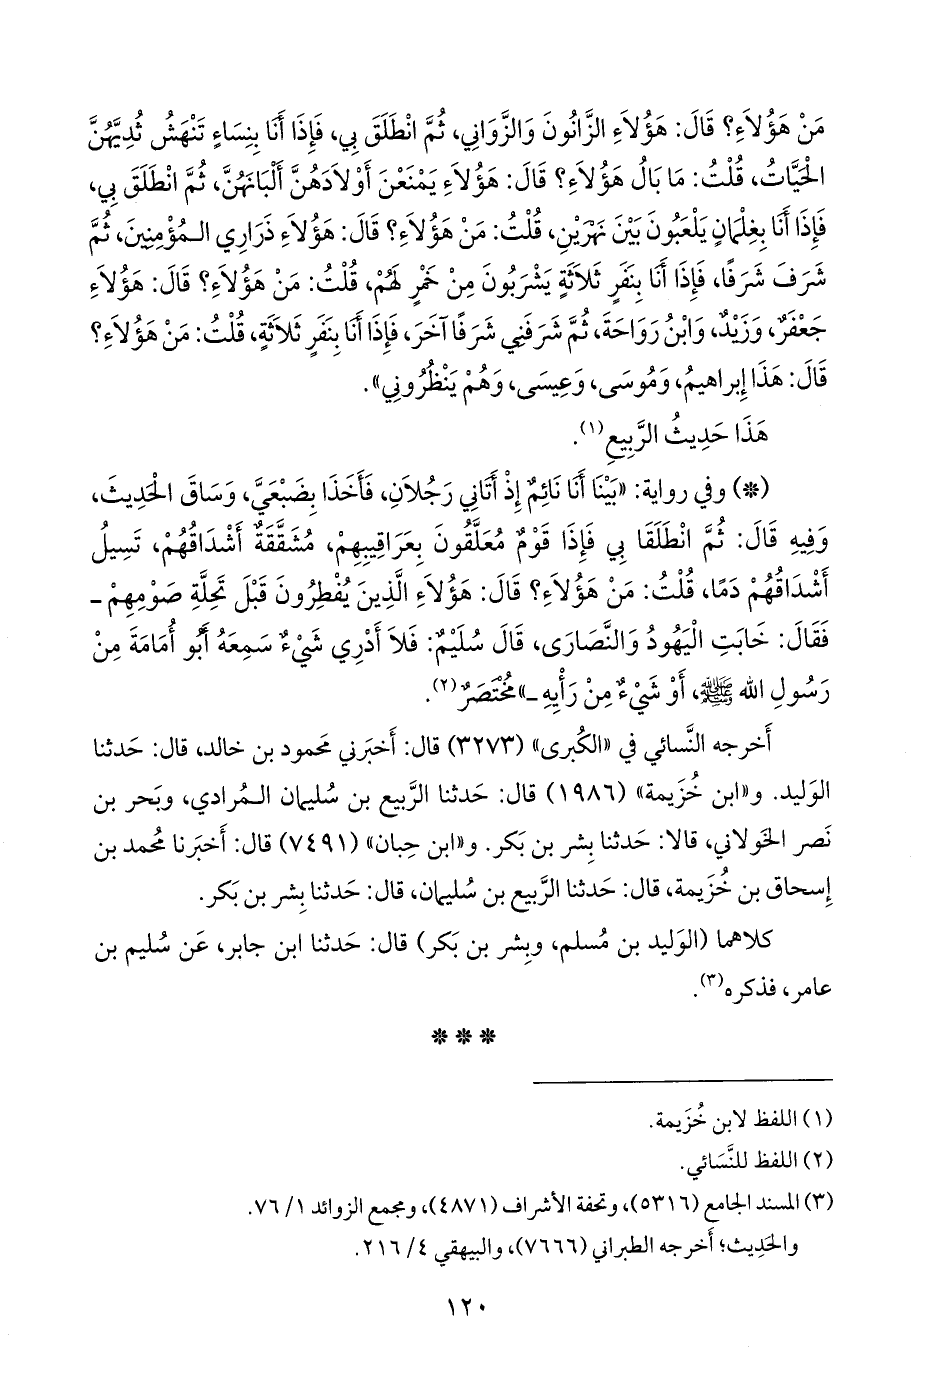 مَنْ هَؤُلاَءِ؟ قَالَ: هَؤُلاَءِ الزَّانُونَ وَالزَّوَانِي، ثُمَّ انْطَلَقَ بِي، فَإِذَا أَنَا بِنِسَاءٍ تَنْهَشُ ثُدِيَّهُنَّ
الْحَيَّاتُ، قُلْتُ: مَا بَالُ هَؤُلاَءِ؟ قَالَ: هَؤُلاَءِ يَمْنَعْنَ أَوْلاَدَهُنَّ أَلْبَانَهُنَّ، ثُمَّ انْطَلَقَ بِي،
فَإِذَا أَنَا بِغِلْمَانٍ يَلْعَبُونَ بَيْنَ نَهَرَيْنِ، قُلْتُ: مَنْ هَؤُلاَءِ؟ قَالَ: هَؤُلاَءِ ذَرَارِي الـمُؤْمِنِينَ، ثُمَّ
شَرَفَ شَرَفًا، فَإِذَا أَنَا بِنَفَرٍ ثَلاَثَةٍ يَشْرَبُونَ مِنْ خَمْرٍ لَهُمْ، قُلْتُ: مَنْ هَؤُلاَءِ؟ قَالَ: هَؤُلاَءِ
جَعْفَرٌ، وَزَيْدٌ، وَابْنُ رَوَاحَةَ، ثُمَّ شَرَفَنِي شَرَفًا آخَرَ، فَإِذَا أَنَا بِنَفَرٍ ثَلاَثَةٍ، قُلْتُ: مَنْ هَؤُلاَءِ؟
قَالَ: هَذَا إِبراهِيمُ، وَمُوسَى، وَعِيسَى، وَهُمْ يَنْظُرُونِي».
هَذَا حَدِيثُ الرَّبِيعِ(١).
(*) وفي رواية: «بَيْنَا أَنَا نَائِمٌ إِذْ أَتَانِي رَجُلاَنِ، فَأَخَذَا بِضَبْعَيَّ، وَسَاقَ الْحَدِيثَ،
وَفِيهِ قَالَ: ثُمَّ انْطَلَقَا بِي فَإِذَا قَوْمٌ مُعَلَّقُونَ بِعَرَاقِيبِهِمْ، مُشَقَّقَةٌ أَشْدَاقُهُمْ، تَسِيلُ
أَشْدَاقُهُمْ دَمًا، قُلْتُ: مَنْ هَؤُلاَءِ؟ قَالَ: هَؤُلاَءِ الَّذِينَ يُفْطِرُونَ قَبْلَ تَحِلَّةِ صَوْمِهِمْ -
فَقَالَ: خَابَتِ الْيَهُودُ وَالنَّصَارَى، قَالَ سُلَيْمٌ: فَلاَ أَدْرِي شَيْءٌ سَمِعَهُ أَبُو أُمَامَةَ مِنْ
رَسُولِ الله ﷺ، أَوْ شَيْءٌ مِنْ رَأْيِهِ -» مُخْتَصَرٌ(٢).
أَخرجه النَّسائي في «الكُبرى» (٣٢٧٣) قال: أَخبَرني محَمود بن خالد، قال: حَدثنا
الوَليد. و«ابن خُزَيمة» (١٩٨٦) قال: حَدثنا الرَّبيع بن سُليمان الـمُرادي، وبَحر بن
نَصر الخَولاني، قالا: حَدثنا بِشر بن بَكر. و«ابن حِبان» (٧٤٩١) قال: أَخبَرنا مُحمد بن
إِسحاق بن خُزَيمة، قال: حَدثنا الرَّبيع بن سُليمان، قال: حَدثنا بِشر بن بَكر.
كلاهما (الوَليد بن مُسلم، وبِشر بن بَكر) قال: حَدثنا ابن جابر، عَن سُليم بن
عامر، فذكره(٣).
* * *
(١) اللفظ لابن خُزَيمة.
(٢) اللفظ للنَّسَائي.
(٣) المسند الجامع (٥٣١٦)، وتحفة الأشراف (٤٨٧١)، ومجمع الزوائد ١/ ٧٦.
والحَدِيث؛ أَخرجه الطبراني (٧٦٦٦)، والبيهقي ٤/ ٢١٦.
١٢٠